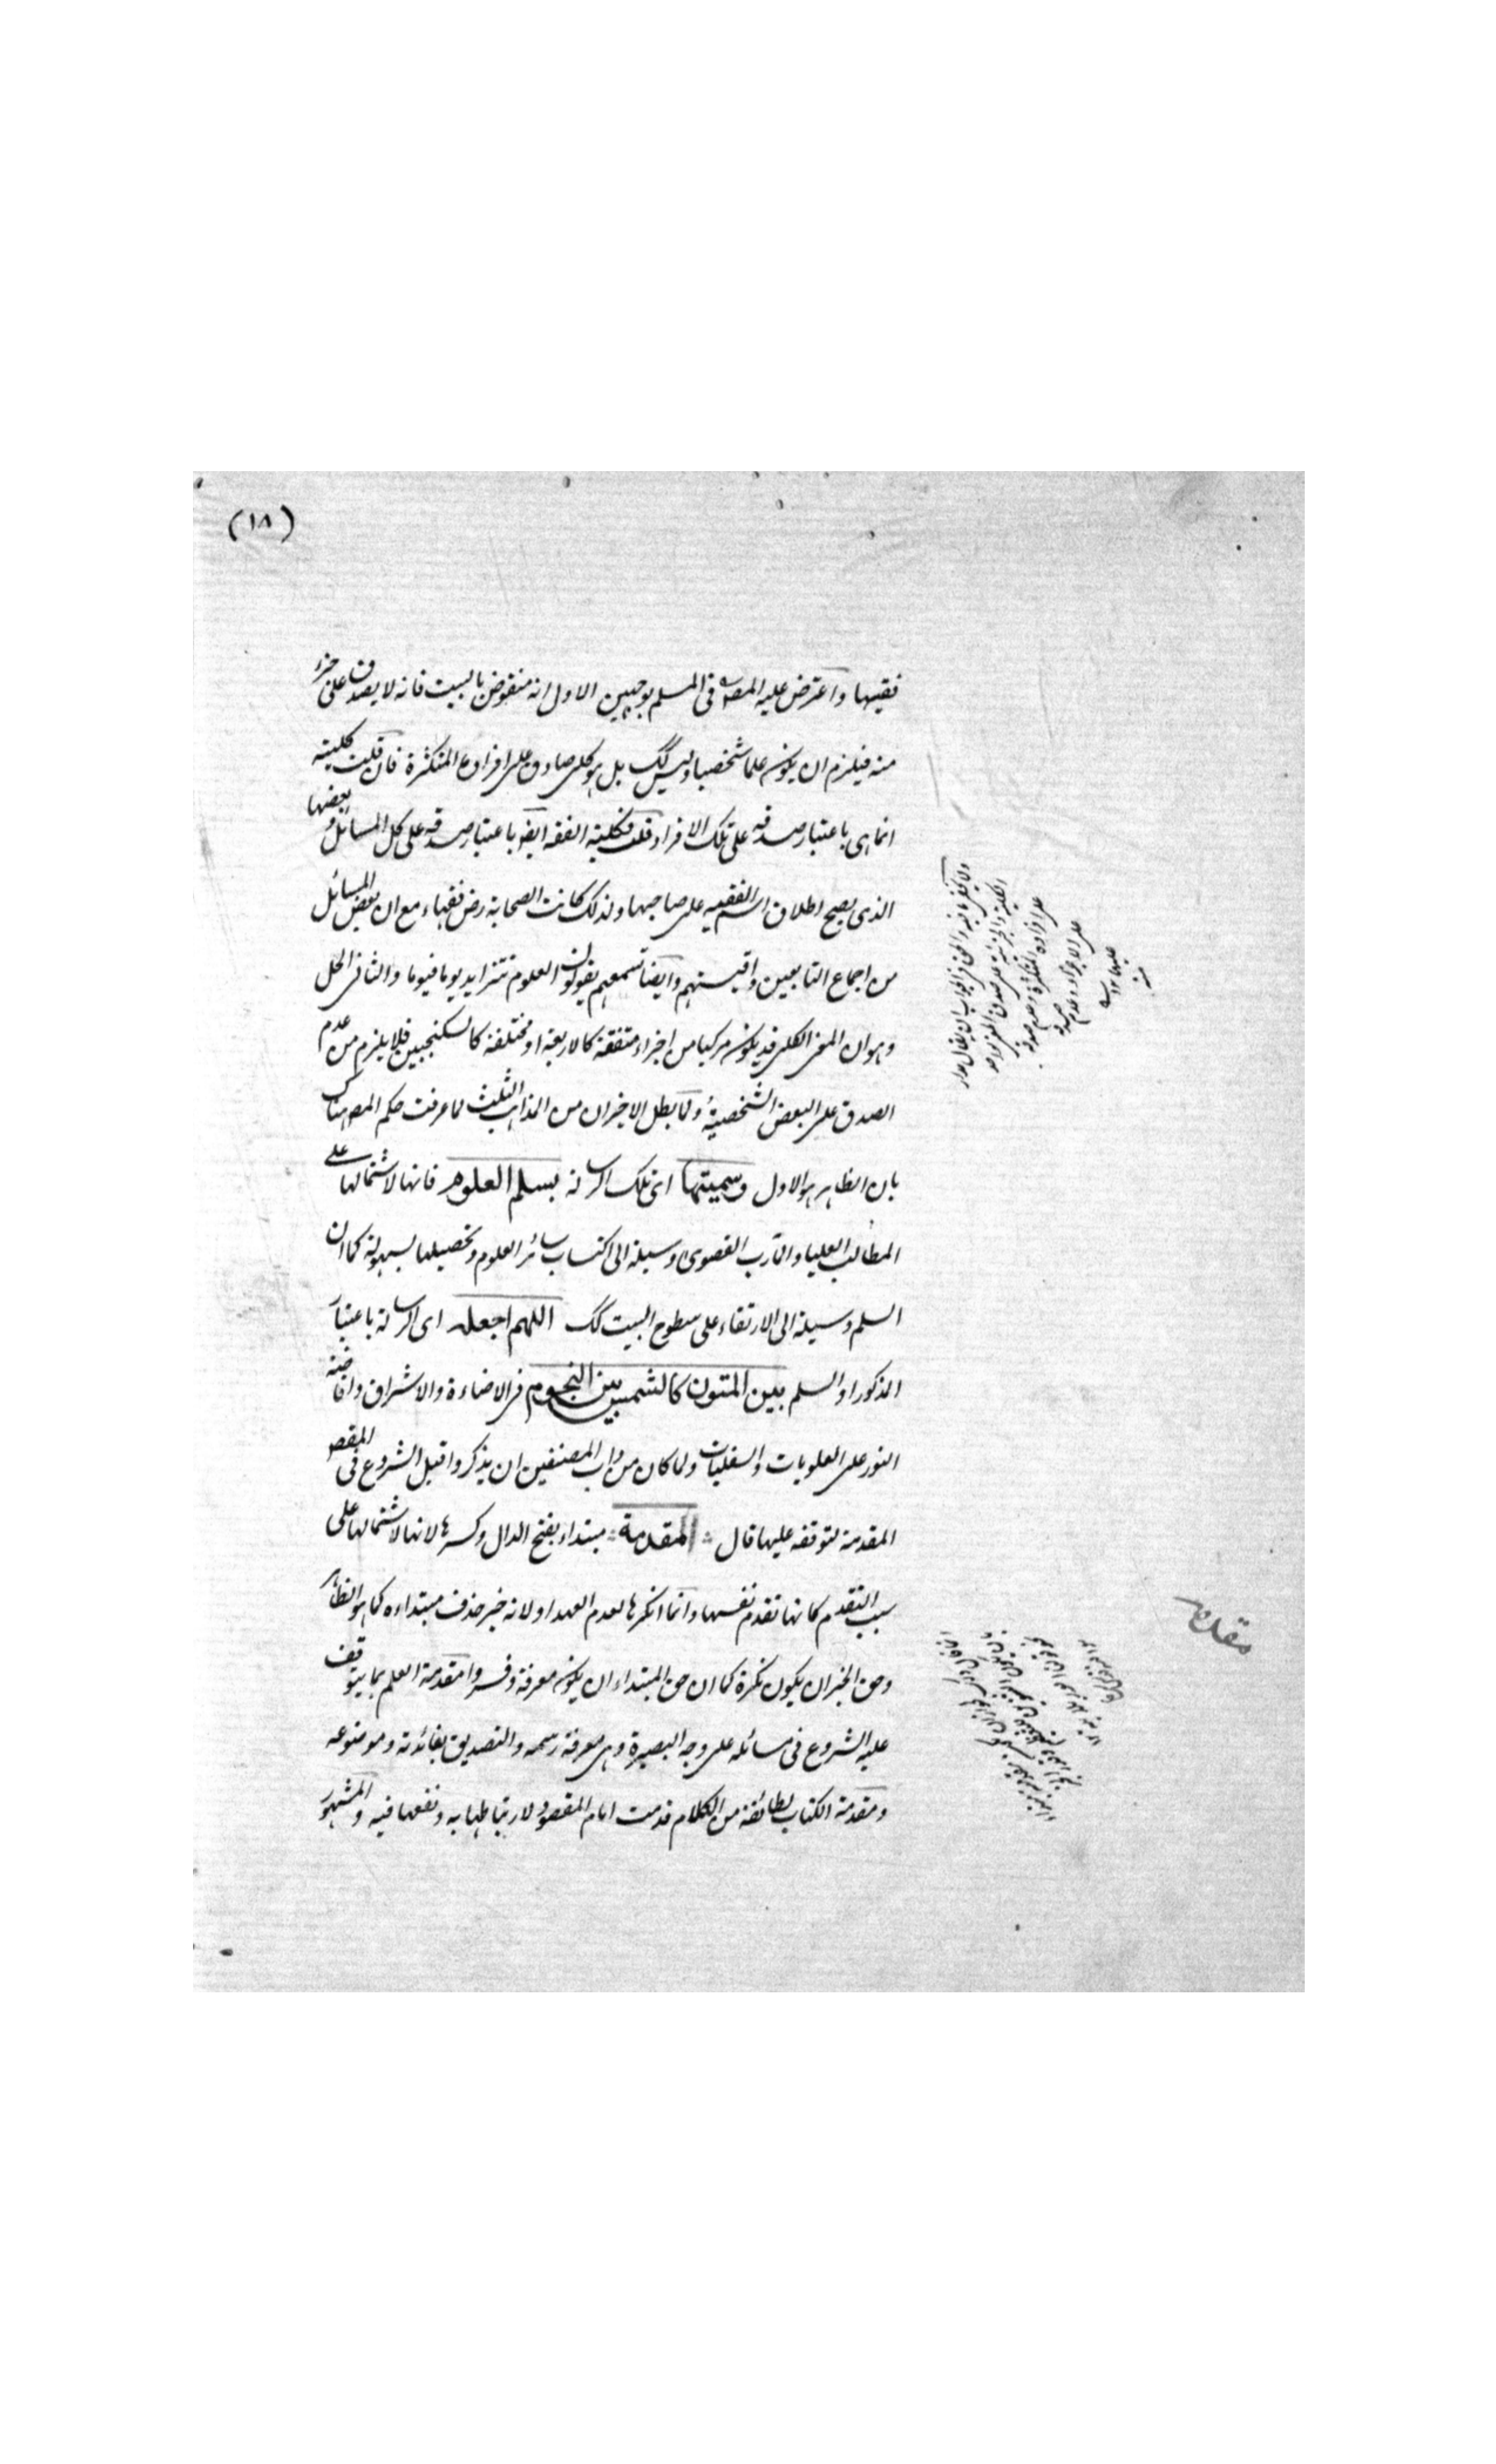 (١٨)
فقيها واعترض عليه المصـ في المسلم بوجهين الاول انه منقوض بالبيت فانه لا يصدق على جزء
منه فيلزم ان يكون علما شخصيا وليس كك بل هو كلى صادق على افراده المتكثرة فان قلت كليته
انما هى باعتبار صدقه على تلك الافراد قلت فكلية الفقه ايضو باعتبار صدقه على كل المسائل وبعضها
الذى يصح اطلاق اسم الفقيه على صاحبها ولذلك كانت الصحابة رض فقهاء مع ان بعض المسائل
من اجماع التابعين واقيستهم وايضا تسمعهم يقولون العلوم تتزايد يوما فيوما والثانى الحل
وهو ان المعنى الكلى قد يكون مركبا من اجزاء متفقة كالاربعة او مختلفة كالسكنجبين فلا يلزم من عدم
الصدق على البعض الشخصية ولما بطل الاخيران من المذاهب الثلث لما عرفت حكم المصـ هناك
بان الظاهر هو الاول وسميتها اى تلك الرسالة بسلم العلوم فانها لاشتمالها على
المطالب العليا والمآرب القصوى وسيلة الى اكتساب سائر العلوم وتحصيلها بسهولة كما ان
السلم وسيلة الى الارتقاء على سطوح البيت كك اللهم اجعله اى الرسالة باعتبار
المذكور او السلم بين المتون كالشمس بين النجوم فى الاضاءة والاشراق وافاضة
النور على العلويات والسفليات ولما كان من داب المصنفين ان يذكروا قبل الشروع فى المقصـ
المقدمة لتوقفه عليها قال المقدمة مبتداء بفتح الدال وكسرها لانها لاشتمالها على
سبب التقدم كانها تقدم نفسها وانما انكرها لعدم العهد او لانه خبر حذف مبتداءه كما هو الظاهر
وحق الخبر ان يكون نكرة كما ان حق المبتداء ان يكون معرفة وفسروا مقدمة العلم بما يتوقف
عليه الشروع فى مسائله على وجه البصيرة وهى معرفة رسمه والتصديق بفائدته وموضوعه
ومقدمة الكتاب بطائفة من الكلام قدمت امام المقصود لارتباطها به ونفعها فيه والمشهور
على افراده المتكثرة وعدم صدقه
على الاجزاء وعدم صدقه
عليها سواء
منه
مقدمه